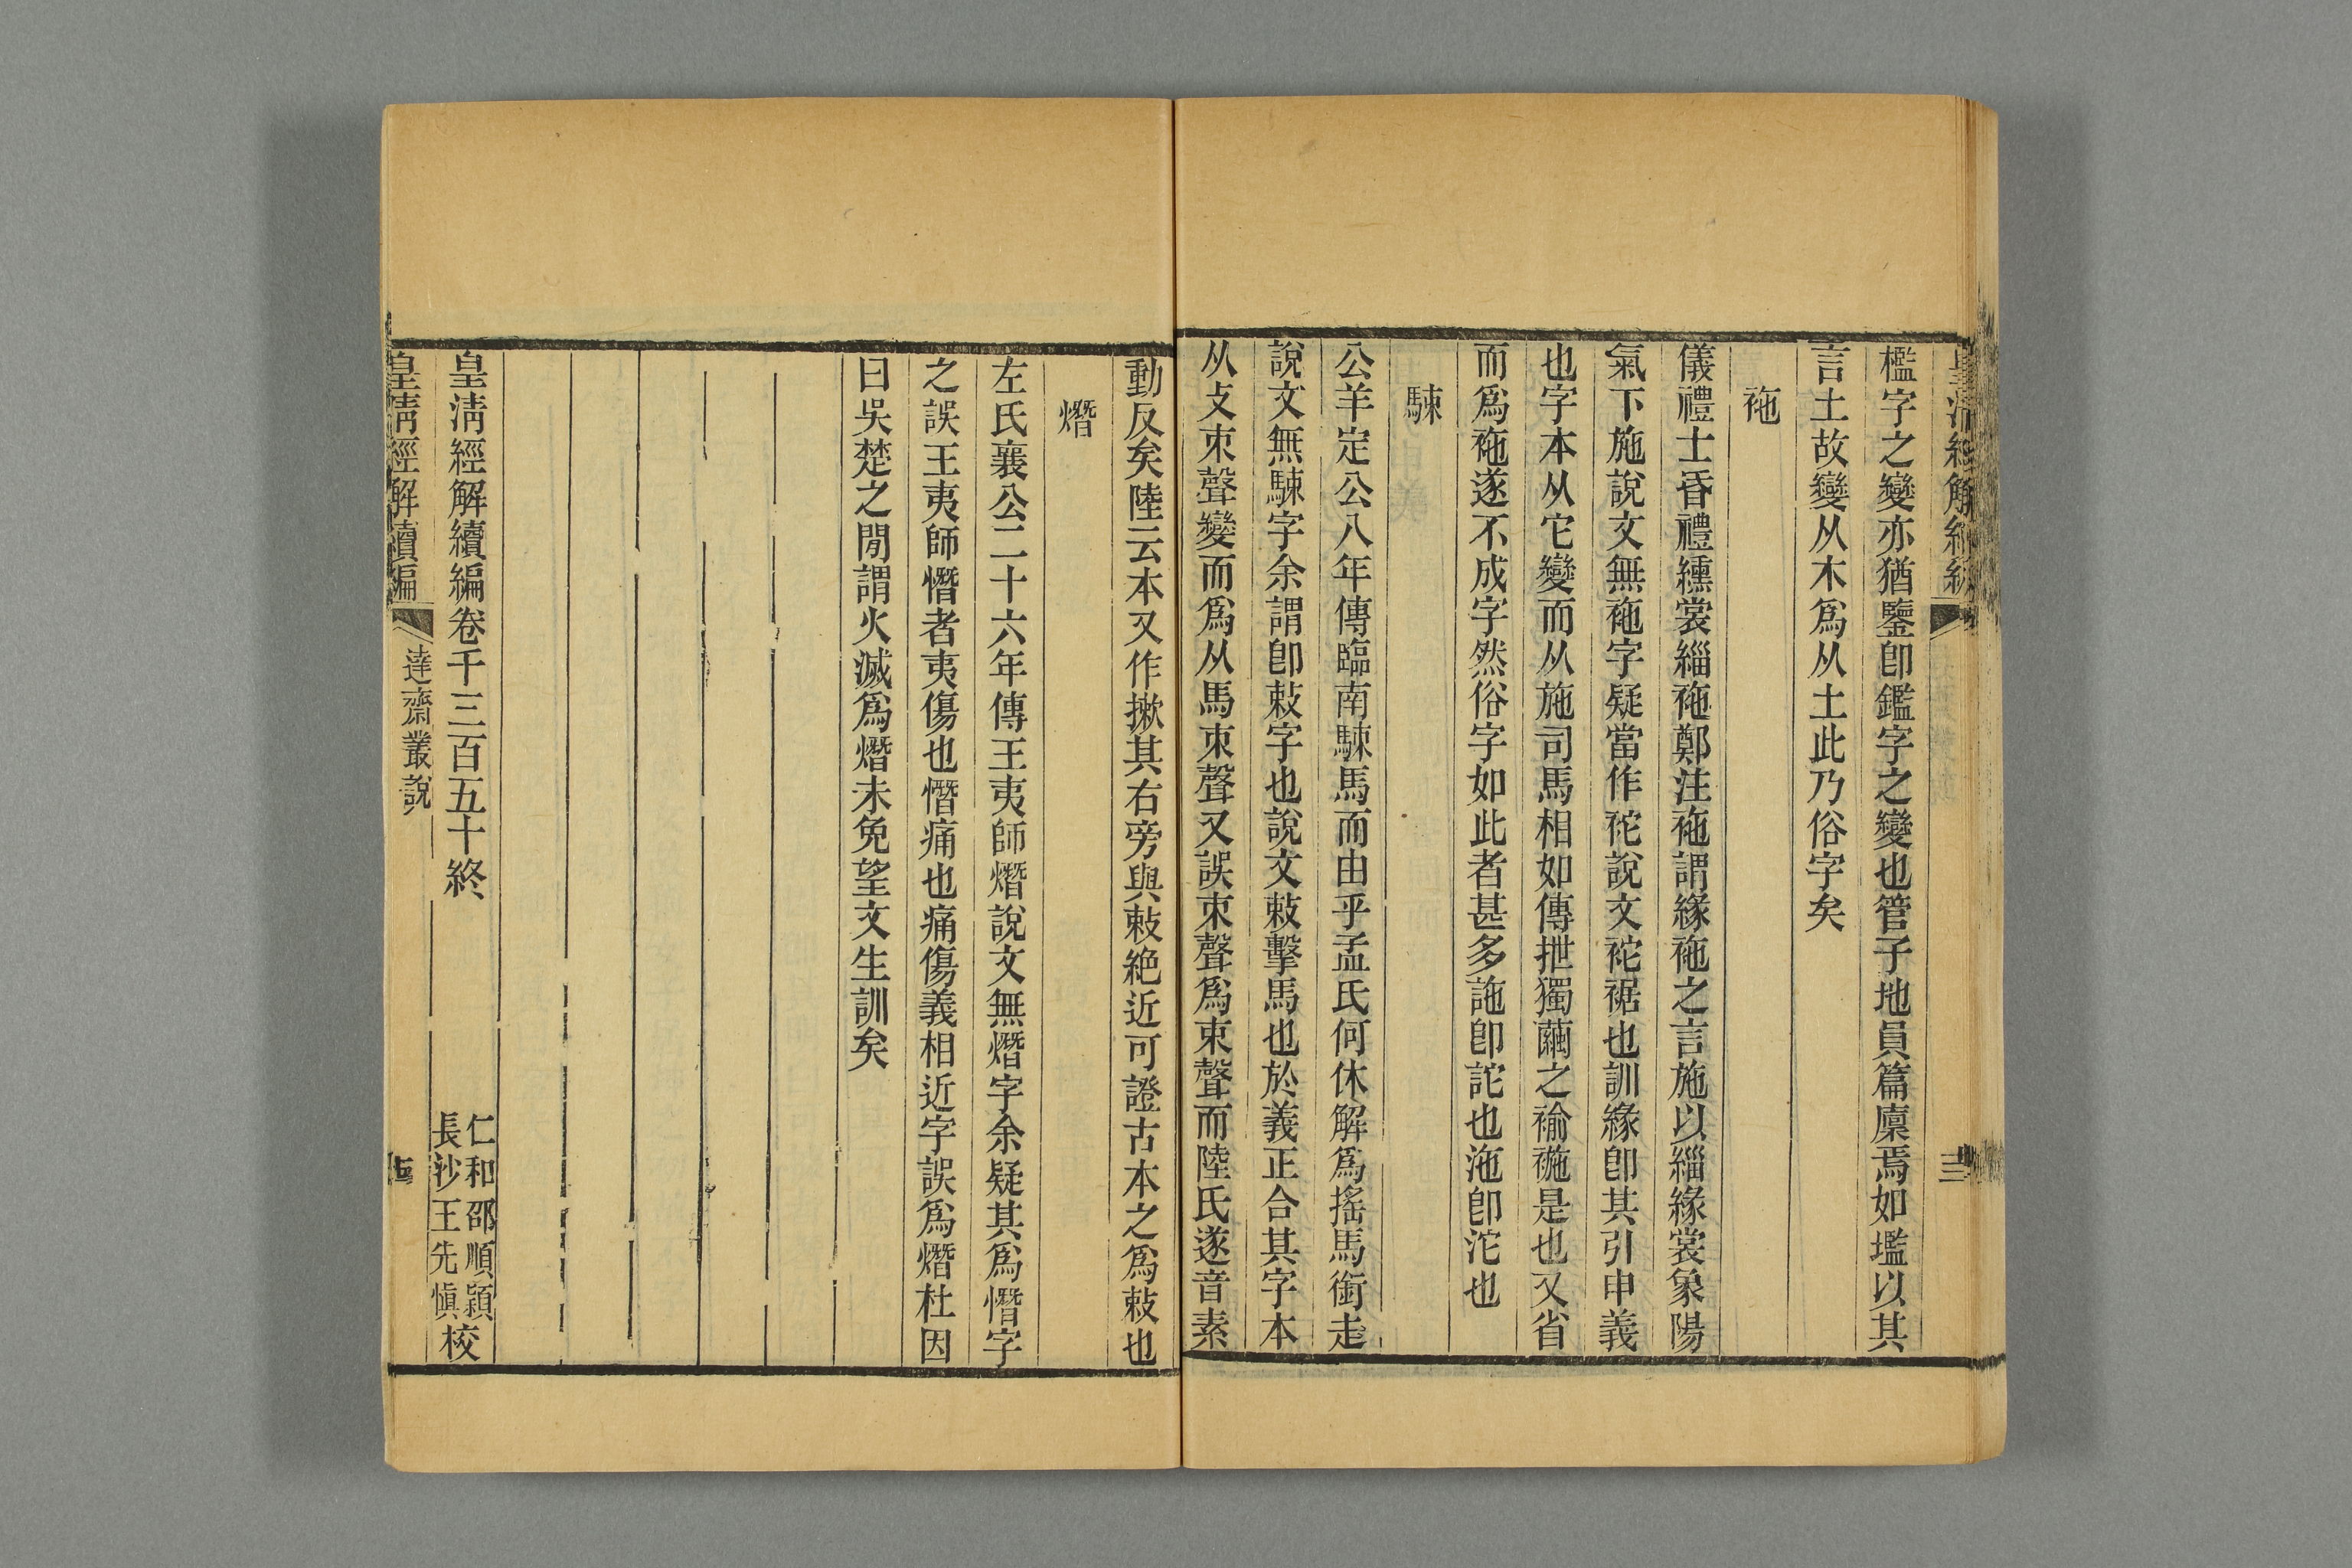 皇清經解續編
檻字之變亦猶鑒卽鑑字之變也管子地員篇廩焉如壏以其
言土故變从木爲从土此乃俗字矣
袘
儀禮士昏禮纁裳緇袘鄭注袘謂緣袘之言施以緇緣裳象陽
氣下施說文無袘字疑當作袉說文袉裾也訓緣卽其引申義
也字本从它變而从施司馬相如傳抴獨繭之褕䙾是也又省
而爲袘遂不成字然俗字如此者甚多訑卽詑也池卽沱也
駷
公羊定公八年傳臨南駷馬而由乎孟氏何休解爲搖馬銜走
說文無駷字余謂卽敕字也說文敕擊馬也於義正合其字本
从攴朿聲變而爲从馬朿聲又誤朿聲爲束聲而陸氏遂音素
動反矣陸云本又作摗其右旁與敕絶近可證古本之爲敕也
熸
左氏襄公二十六年傳王夷師熸說文無熸字余疑其爲憯字
之誤王夷師憯者夷傷也憯痛也痛傷義相近字誤爲熸杜因
曰吳楚之閒謂火滅爲熸未免望文生訓矣
皇淸經解續編卷千三百五十終
仁和邵順穎
長沙王先愼校
皇淸經解續編
達齋叢說